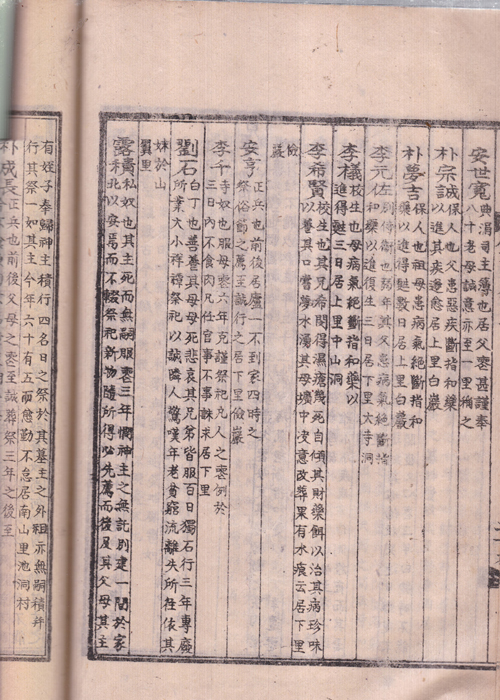 安世寬 典涓司主簿也居父喪甚謹奉
八十老母誠意亦至一里稱之
朴宗誠 保人也父患惡疾斷指和藥
以進其疾遂愈居上里白巖
朴夢吉 保人也祖母患病氣絶斷指和
藥以進得甦數日居上里白巖
李元佐 別侍衛也弱年其父患病氣絶斷指
和藥以進復生三日居下里大寺洞
李檥 校生也母病氣絶斷指和藥以
進得甦三日居上里中山洞
李希賢 校生也其兄希閔得濕瘡幾死自傾其財藥餌以治其病珍味
以養其口嘗夢水濁其母壙中決意改葬果有水痕云居下里
儉
巖
安亨 正兵也前後居廬一不到家四時之
祭俗節之薦至誠行之居下里儉巖
李千 寺奴也服母喪六年克謹祭祀凡人之喪例於
三日内不食肉凡任官事不事誅求居下里
劉石 白丁也善養其母母死悲哀其兄弟皆服百日獨石行三年專廢
所業大小祥禫祭祀以誠隣人驚嘆年老貧窮流離失所往依其
妹於山
翼里
露積 私奴也其主死而無嗣服喪三年憫神主之無託別建一間於家
北以安焉而不輟祭祀新物隨所得必先薦而後及其父母其主
有姪子奉歸神主積行四名日之祭於其墓主之外祖亦無嗣積并
行其祭一如其主今年六十有五而愈勤不怠居南山里池洞村
朴成長 正兵也前後父母之喪至誠葬祭三年之後至